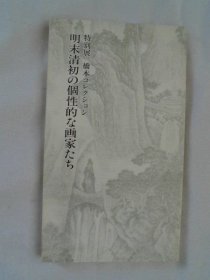 特別展 橋本コレクション
明末清初の個性的な画家たち